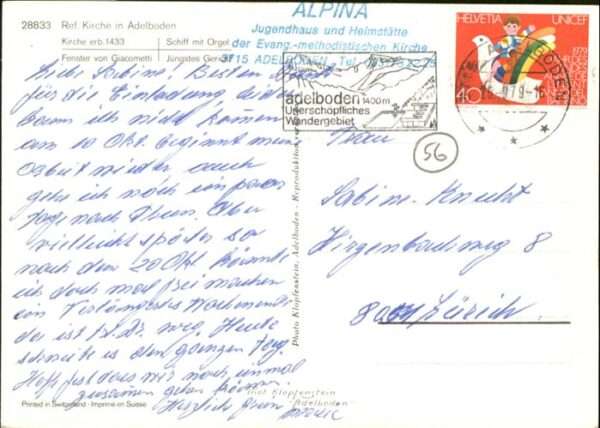 28833 Ref. Kirche in Adelboden
Kirche erb. 1433 Schiff mit Orgel
Fenster von Giacometti Jüngstes Gericht
ALPINA
Jugendhaus und Heimstätte
der Evang.-methodistischen Kirche
3715 ADELBODEN - Tel.
adelboden 1400 m
Unerschöpfliches
Wandergebiet
HELVETIA UNICEF
1979
40
ADELBODEN
56
Liebe Sabine! Besten Dank
für die Einladung, leider
kann ich nicht kommen
am 10 Okt. beginnt meine
Arbeit wieder, auch
gehe ich noch ein paar
Tage nach Thun. Aber
vielleicht später so
nach dem 20 Okt. könnte
ich doch mal frei machen
ein Verlängertes Wochenende
der ist weg. Heute
schneite es den ganzen Tag.
Hoffe, dass wir noch einmal
zusammen gehen können.
Herzlich
Frau
Sabine
8
Zürich
Photo Klopfenstein, Adelboden - Reproduktion
mot Klopfenstein
"Adelboden"
Printed in Switzerland - Imprimé en Suisse